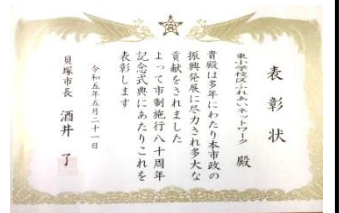 表彰状
東小学校区ふれあいネットワーク 殿
貴殿は多年にわたり本市政の
振興発展に尽力され多大な
貢献をされました
よって市制施行八十周年
記念式典にあたりこれを
表彰します
令和五年五月二十一日
貝塚市長 酒井 了